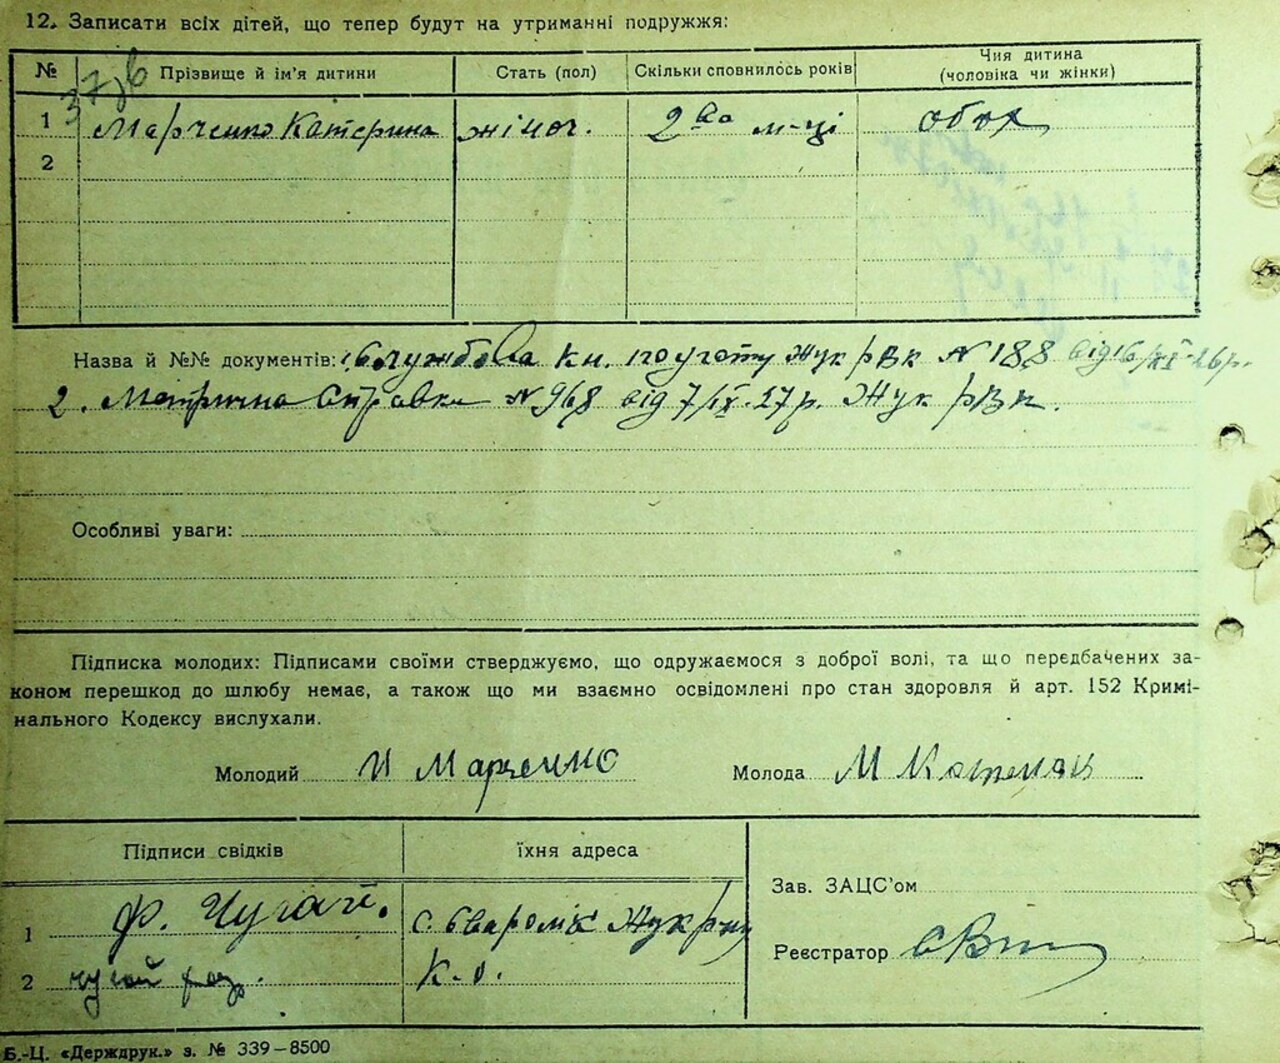 12. Записати всіх дітей, що тепер будут на утриманні подружжя:
№ Прізвище й ім'я дитини Стать (пол) Скільки сповнилось років Чия дитина (чоловіка чи жінки)
37
1 Марченко Катерина жіноч. 2ва м-ці обох
2
Назва й №№ документів: Службова кн. Жук рВк N 188 від 16/XI-26р.
2. Метрична Справка N 968 від 7/IX-27р. Жук рВк.
Особливі уваги:
Підписка молодих: Підписами своїми стверджуємо, що одружаємося з доброї волі, та що передбачених за-
коном перешкод до шлюбу немає, а також що ми взаємно освідомлені про стан здоровля й арт. 152 Кримі-
нального Кодексу вислухали.
Молодий И Марченко Молода М
Підписи свідків їхня адреса
Зав. ЗАЦС'ом
1 Ф. Чугай. с.
Реєстратор
2 К-о.
Б.-Ц. «Держдрук.» з. № 339—8500